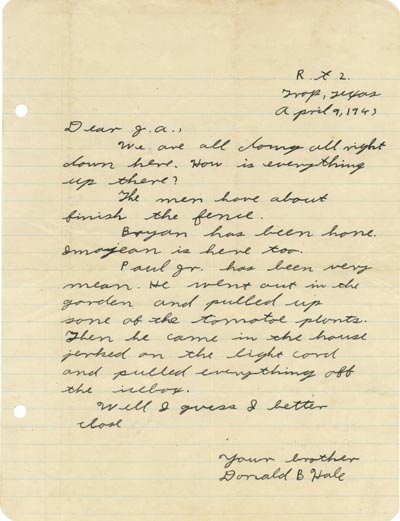 R. t 2.
Trop, Texas
April 9, 1943
Dear J.A.,
We are all doing all right
down here. How is everything
up there?
The men have about
finish the fence.
Bryan has been hone.
Imogean is here too.
Paul Jr. has been very
mean. He went out in the
gorden and pulled up
sone of the tomatoe plants.
Then he came in the house
jerked on the light cord
and pulled everything off
the icebox.
Well I guess I better
close
Your brother
Donald B Hale